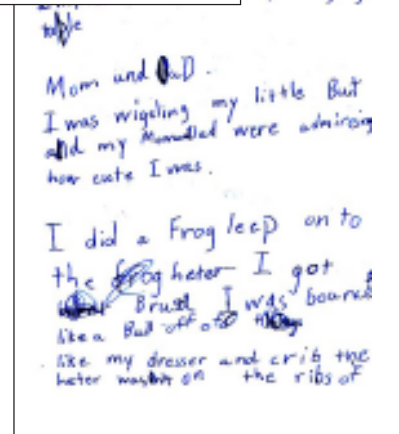 Mom und DaD.
I was wigeling my little But
and my were admiring
how cute I was.
I did a Frog leep on to
the heter I got
Brusd I was bounce
like a Ball off of
like my dresser and crib the
heter wasnt on the ribs of